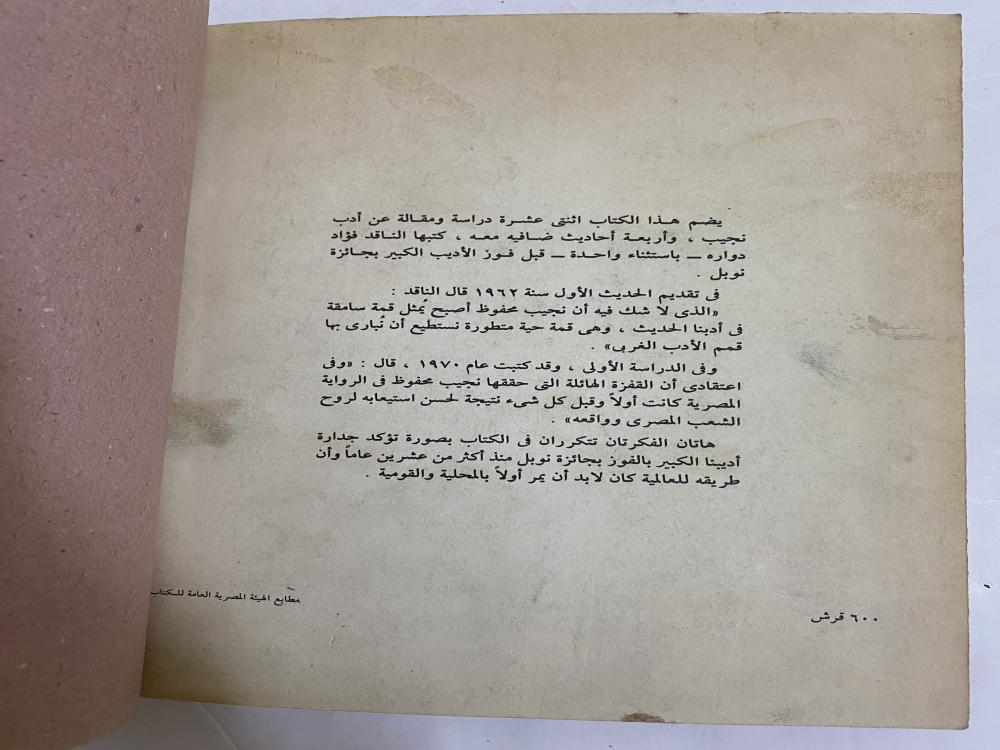 يضم هذا الكتاب اثنتى عشرة دراسة ومقالة عن أدب
نجيب ، وأربعة أحاديث ضافيه معه ، كتبها الناقد فؤاد
دواره — باستثناء واحدة — قبل فوز الأديب الكبير بجائزة
نوبل .
فى تقديم الحديث الأول سنة ١٩٦٢ قال الناقد :
«الذى لا شك فيه أن نجيب محفوظ أصبح يُمثل قمة سامقة
فى أدبنا الحديث ، وهى قمة حية متطورة نستطيع أن نُبارى بها
قمم الأدب الغربى» .
وفى الدراسة الأولى ، وقد كتبت عام ١٩٧٠ ، قال : «وفى
اعتقادى أن القفزة الهائلة التى حققها نجيب محفوظ فى الرواية
المصرية كانت أولاً وقبل كل شىء نتيجة لحسن استيعابه لروح
الشعب المصرى وواقعه» .
هاتان الفكرتان تتكرران فى الكتاب بصورة تؤكد جدارة
أديبنا الكبير بالفوز بجائزة نوبل منذ أكثر من عشرين عاماً وأن
طريقه للعالمية كان لابد أن يمر أولاً بالمحلية والقومية .
مطابع الهيئة المصرية العامة للكتاب
٦٠٠ قرش